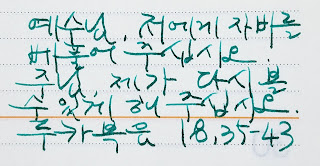 예수님, 저에게 자비를
베풀어 주십시오.
주님, 제가 다시 볼
수 있게 해 주십시오.
루카복음 18,35-43